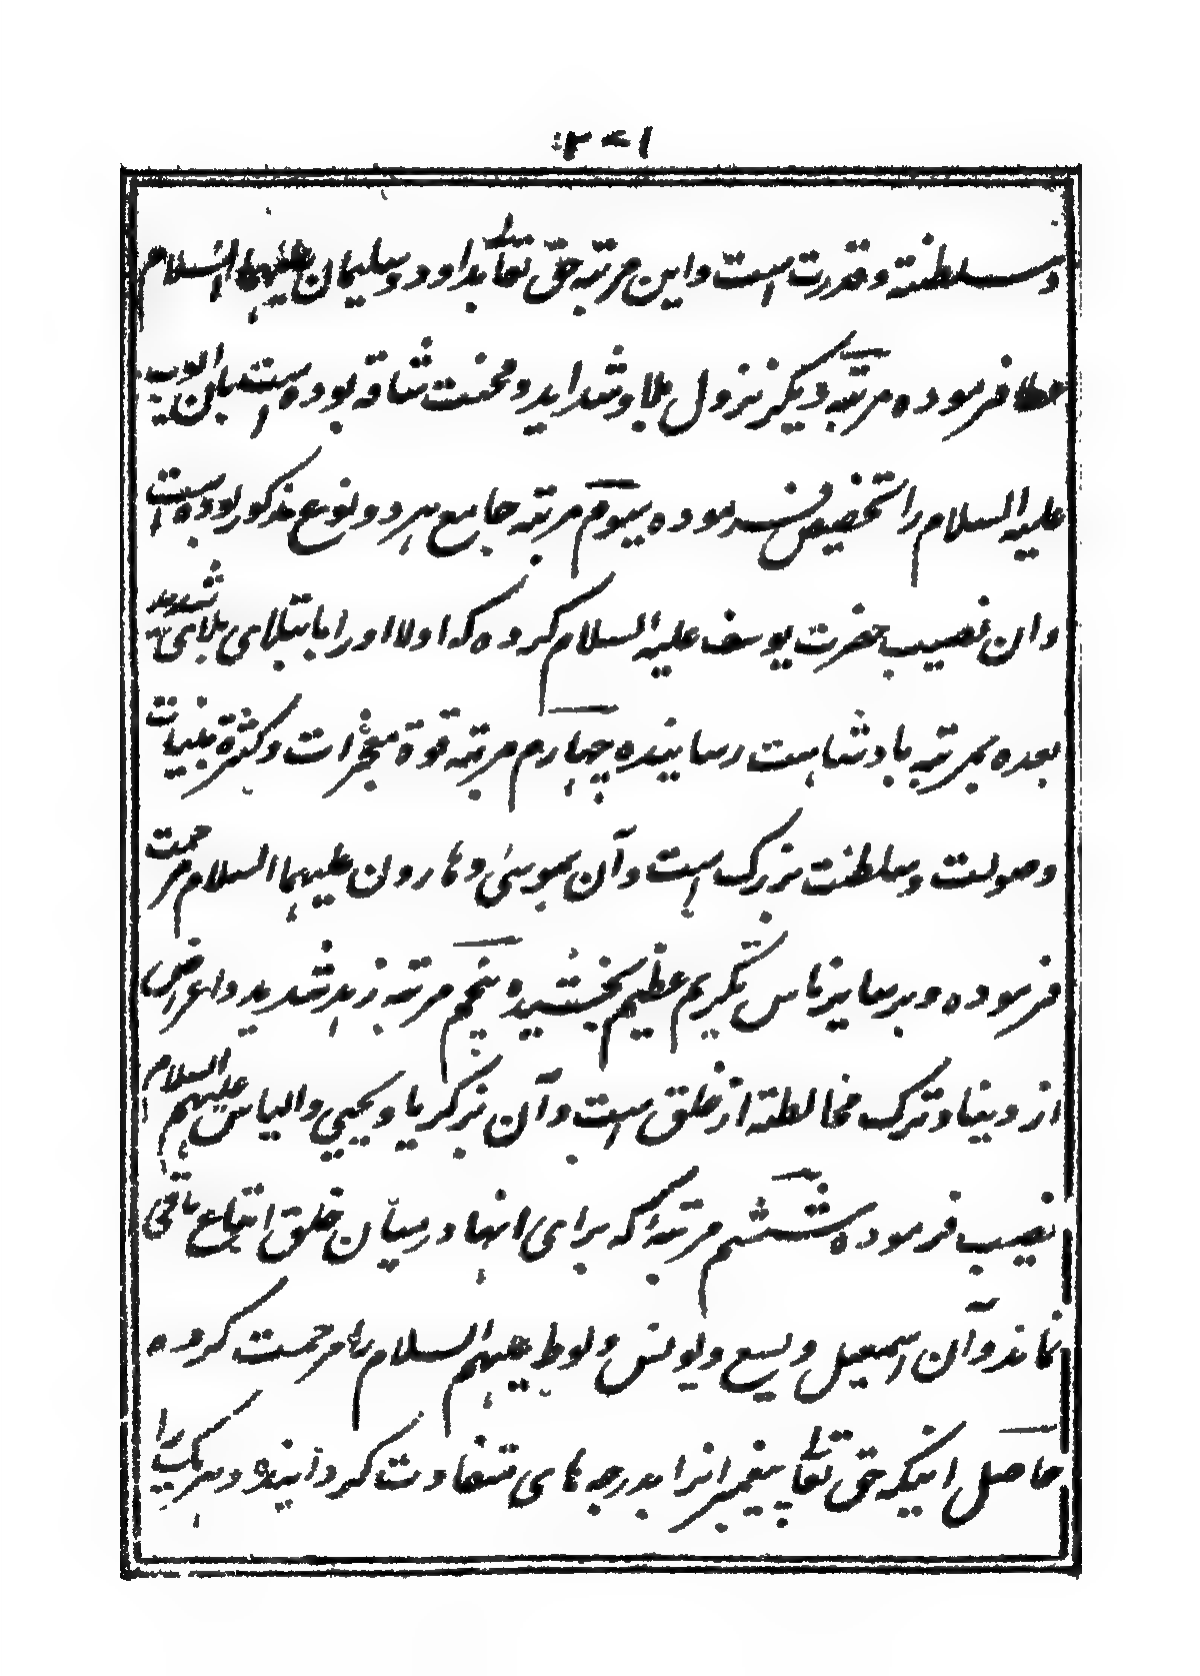 و سلطنة و قدرت است و این مرتبه حق تعالی بداود و سلیمان علیهما السلام
عطا فرموده مرتبه دیگر نزول بلا و شداید و محنت شاقه بوده است باین ایوب
علیه السلام را تخصیص فرموده سیوم مرتبه جامع هر دو نوع مذکور بوده است
و ان نصیب حضرت یوسف علیه السلام کرده که اولا اورا بابتلای بلای شدید
بعده بمرتبه بادشاهت رسانیده چهارم مرتبه قوة معجزات و کثرة
وصولت و سلطنت بزرک است و آن بموسی و هارون علیهما السلام مرحمت
فرموده و بر سایر ناس تکریم عظیم بخشیده پنجم مرتبه زهد شدید و اعراض
از دینا و ترک مخالطة از خلق است و آن بزکریا و یحیی و الیاس علیهم السلام
نصیب فرموده ششم مرتبۀ که برای انها درمیان خلق اتباع باقی
نماند و آن اسمعیل و یسع و یونس و لوط علیهم السلام را مرحمت کرده
حاصل اینکه حق تعالی پیغمبرانرا بدرجه های متفاوت کردانیده و هر یک را